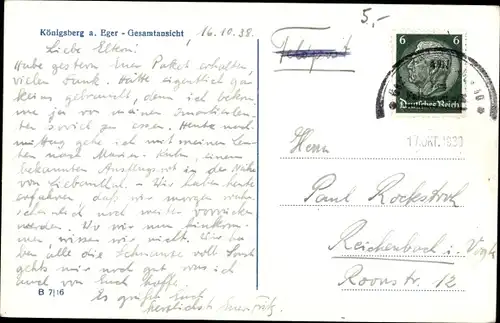 Königsberg a. Eger - Gesamtansicht
16.10.38.
Liebe Eltern!
Habe gestern Euer Paket erhalten,
vielen Dank. Hätte eigentlich gar
keins gebraucht, denn ich bekom-
me ja von meinen Quartiersleu-
ten soviel zu essen. Heute nach-
mittag gehe ich mit meinen Leu-
ten nach Maria Kulm, einem
bekannten Ausflugsort in der Nähe
von Liebenthal. - Wir haben heute
erfahren, daß wir morgen wahr-
scheinlich noch weiter vorrücken
werden. Wo wir nun hinkom-
men, wissen wir nicht. Wir ha-
ben alle die Schnauze voll. Sonst
gehts mir noch gut was ich
auch von Euch hoffe.
Es grüßt Euch
herzlichst Euer Fritz.
B 7116
5,-
Feldpost
6 6
Deutsches Reich
17.OKT.1938
Herrn
Paul Rockstroh
Reichenbach i. Vogtl.
Roonstr. 12